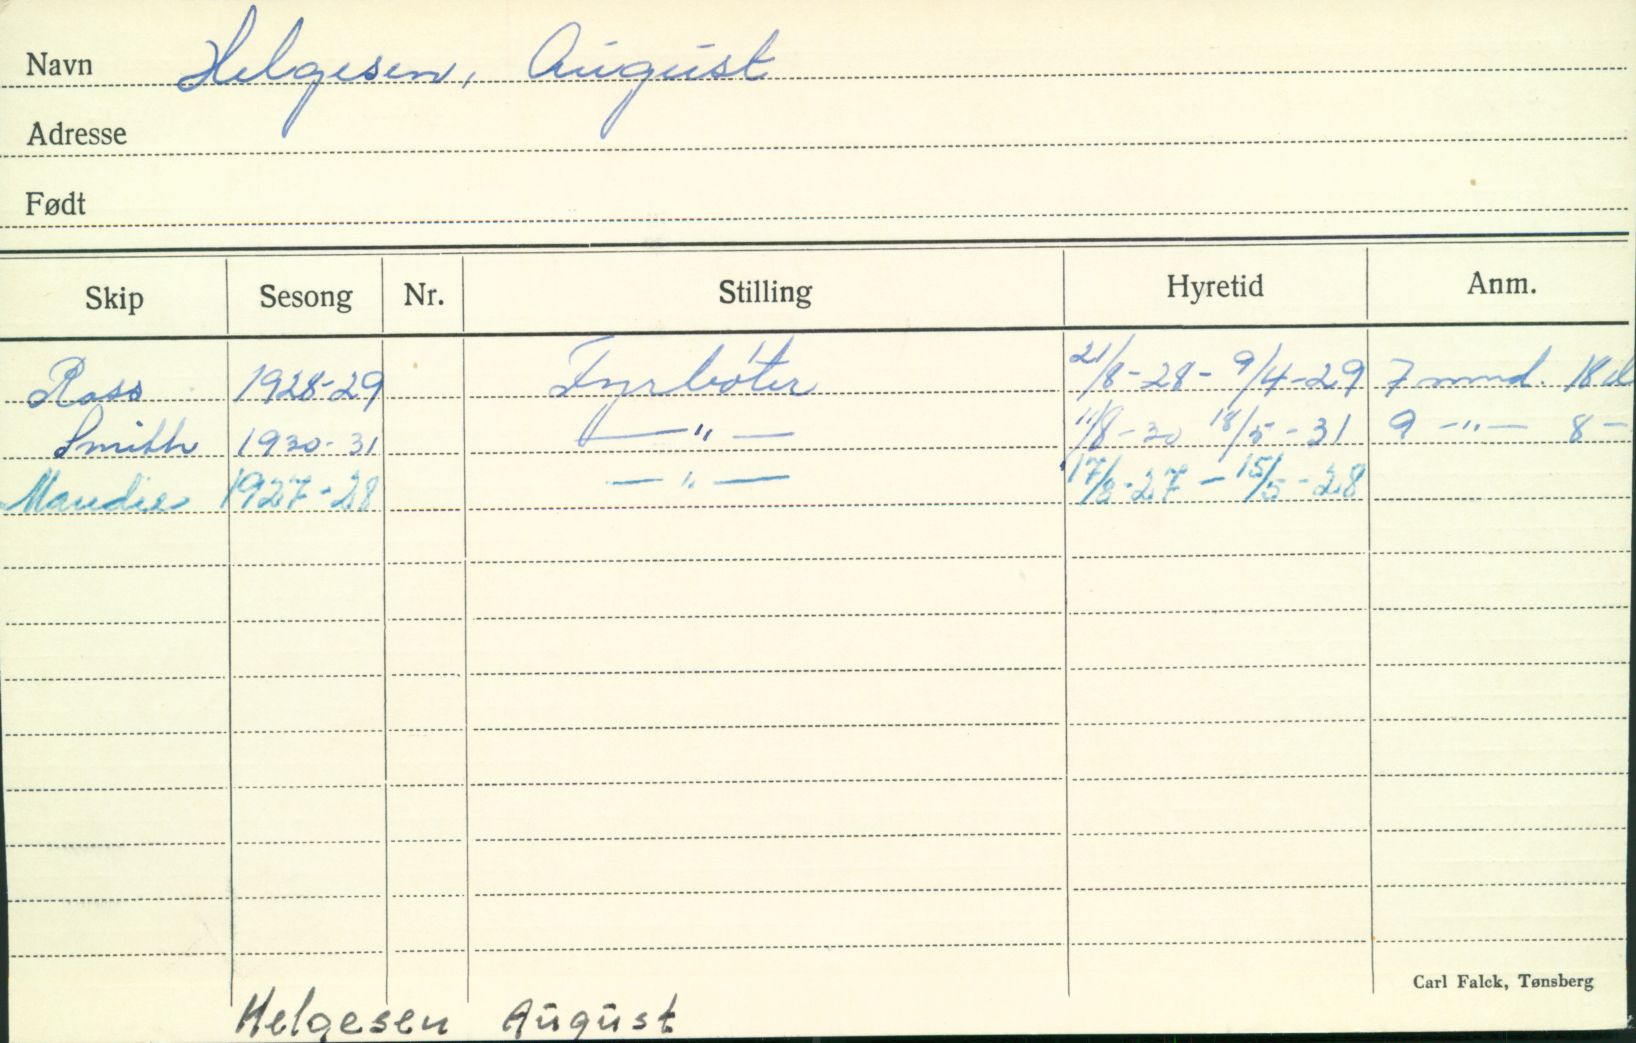 Navn Helgesen, August
Adresse
Født
Skip Sesong Nr. Stilling Hyretid Anm.
Ross 1928-29 Fyrbøter 21/8-28- 9/4-29 7 mnd. 18 d
Smith 1930-31 — " — 11/8-30 18/5-31 9 -"- 8 -
Maudie 1927-28 — " — 17/8-27 - 15/5-28
Carl Falck, Tønsberg
Helgesen August